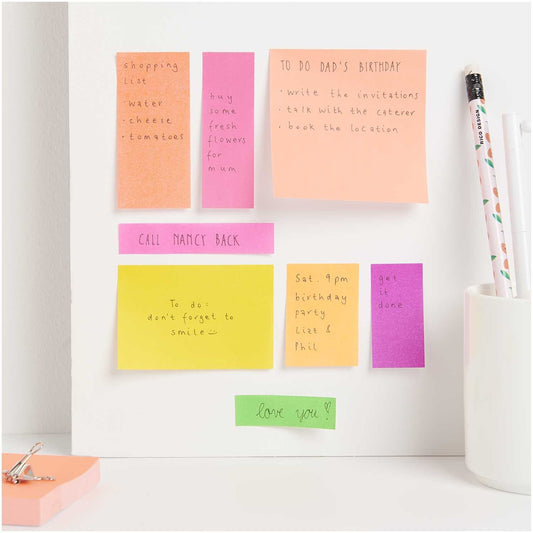 shopping
list
• water
• cheese
• tomatoes
buy
some
fresh
flowers
for
mum
TO DO DAD'S BIRTHDAY
• write the invitations
• talk with the caterer
• book the location
CALL NANCY BACK
To do:
don't forget to
smile
Sat. 9pm
birthday
party
Lizt &
Phil
get
it
done
love you!
RICO DESIGN